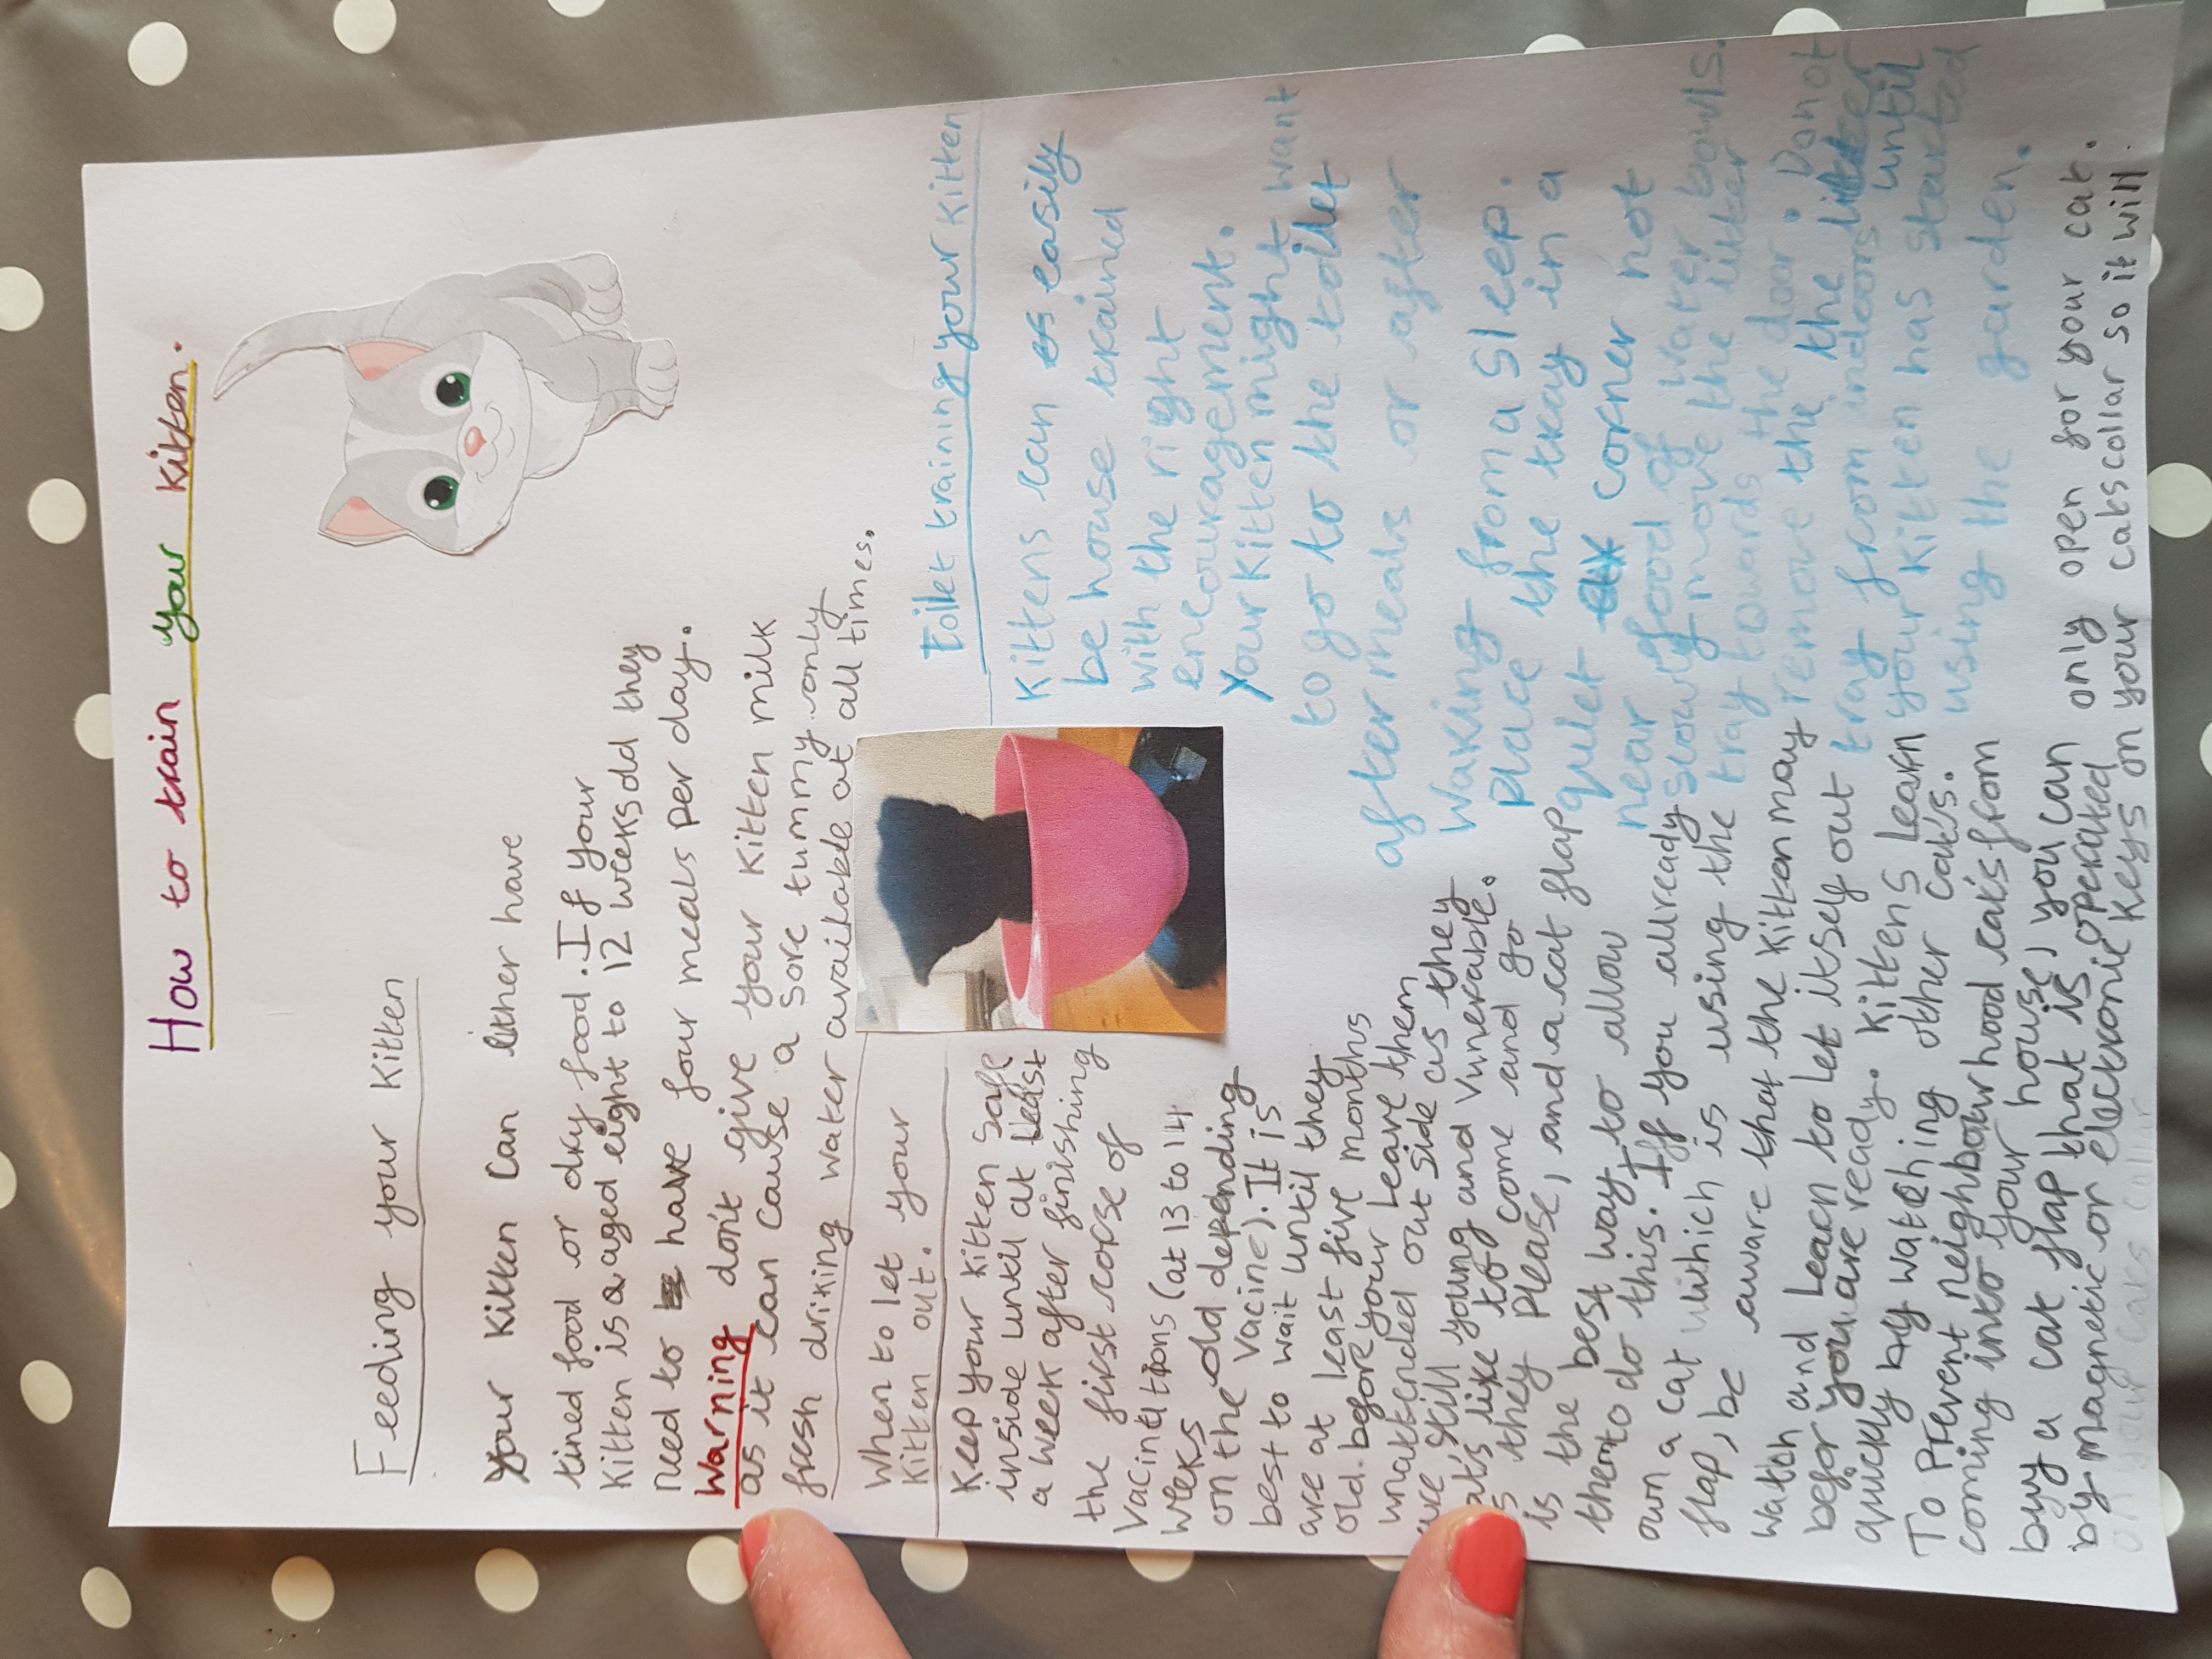 How to train your kitten.
Feeding your Kitten
your Kitten Can either have
tined food or dry food. If your
Kitten is aged eight to 12 weeks old they
need to have four meals per day.
Warning don't give your Kitten milk
as it can cause a sore tummy only
fresh driking water available at all times.
When to let your
Kitten out.
Keep your kitten safe
inside until at least
a week after finishing
the first corse of
Vacinetions (at 13 to 14
weeks old depending
on the vacine). It is
best to wait until they
are at least five months
old. before your leave them
unattended out side as they
are still young and vunerable.
cat's like to come and go
as they Please, and a cat flap
is the best way to allow
them to do this. If you allready
own a cat which is using the
flap, be aware that the kitten may
watch and learn to let itself out
before you are ready. Kittens learn
quickly by watching other cat's.
To Prevent neighbourhood cats from
coming into your house, you can
buy a cat flap that is operated only open for your cat.
by magnetic or electronic keys on your cats collar so it will
toilet training your Kitten
Kittens can easily
be house trained
with the right
encouragement.
Your Kitten might want
to go to the toilet
after meals or after
waking from a sleep.
Place the tray in a
quiet corner not
near food of water bowls.
slowly move the litter
tray towards the door. Do not
remove the the litter
tray from indoors until
your Kitten has started
using the garden.